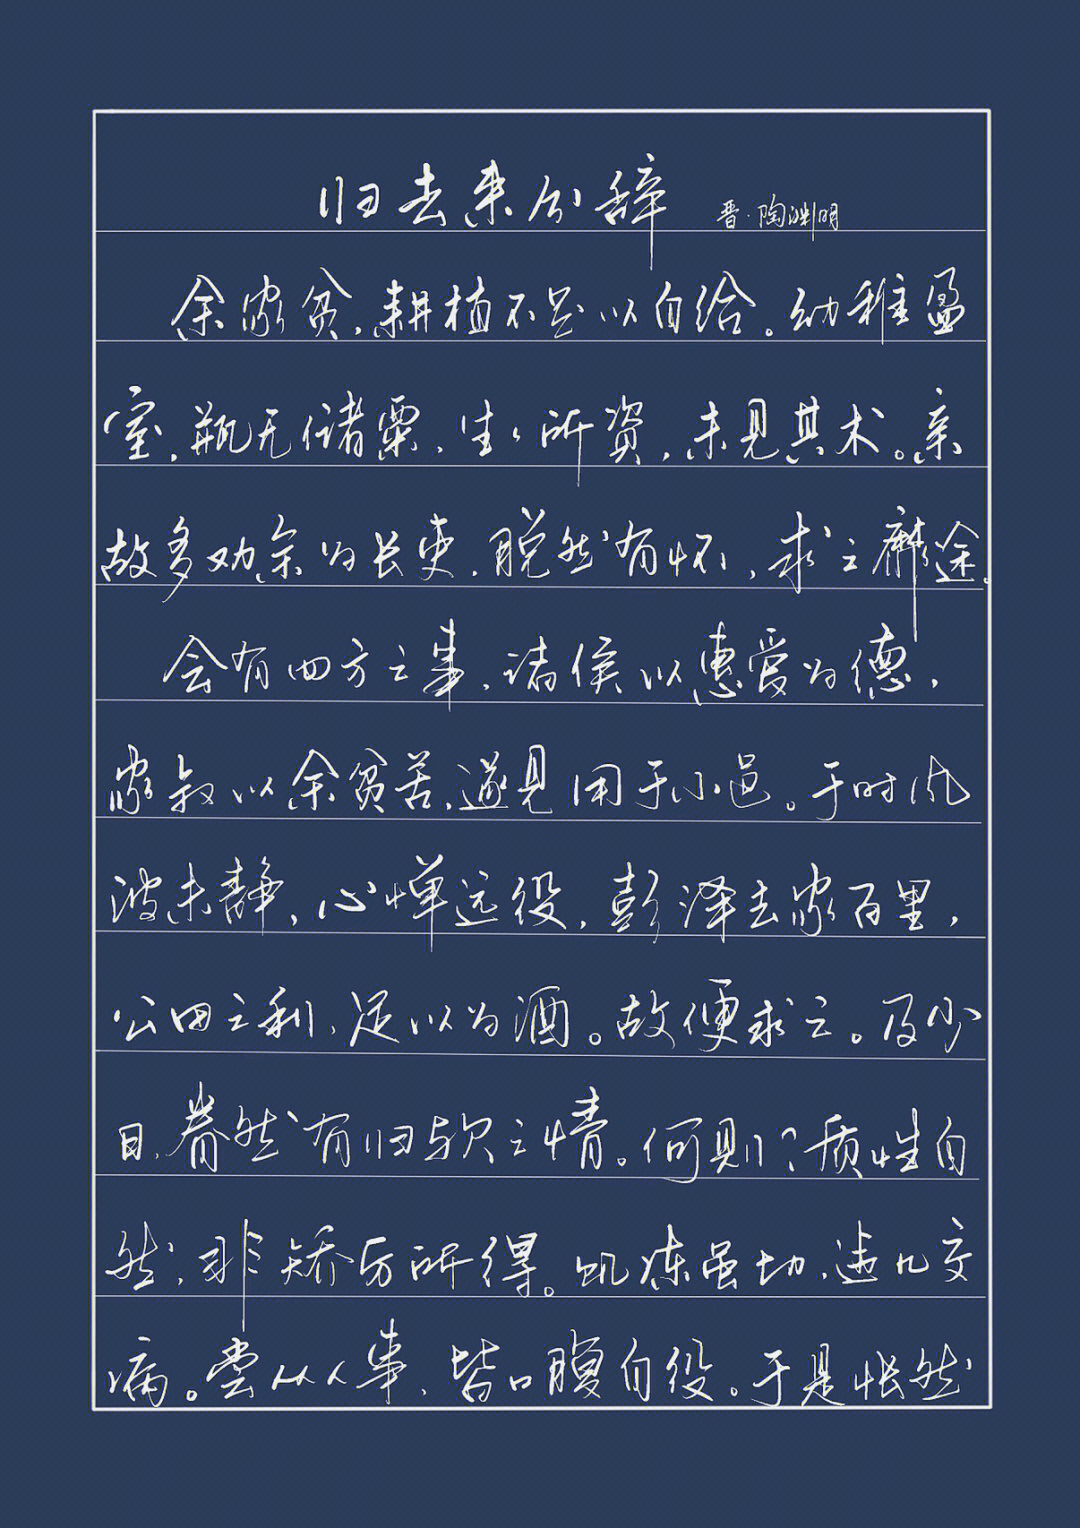 归去来兮辞 晋·陶渊明
余家贫,耕植不足以自给。幼稚盈
室,瓶无储粟,生生所資,未见其术。亲
故多劝余为长吏,脱然有怀,求之靡途。
会有四方之事,诸侯以惠爱为德,
家叔以余贫苦,遂见用于小邑。于时风
波未静,心惮远役,彭泽去家百里,
公田之利,足以为酒。故便求之。及少
日,眷然有归欤之情。何则?质性自
然,非矫厉所得。饥冻虽切,违几交
病。尝从人事,皆口腹自役。于是怅然